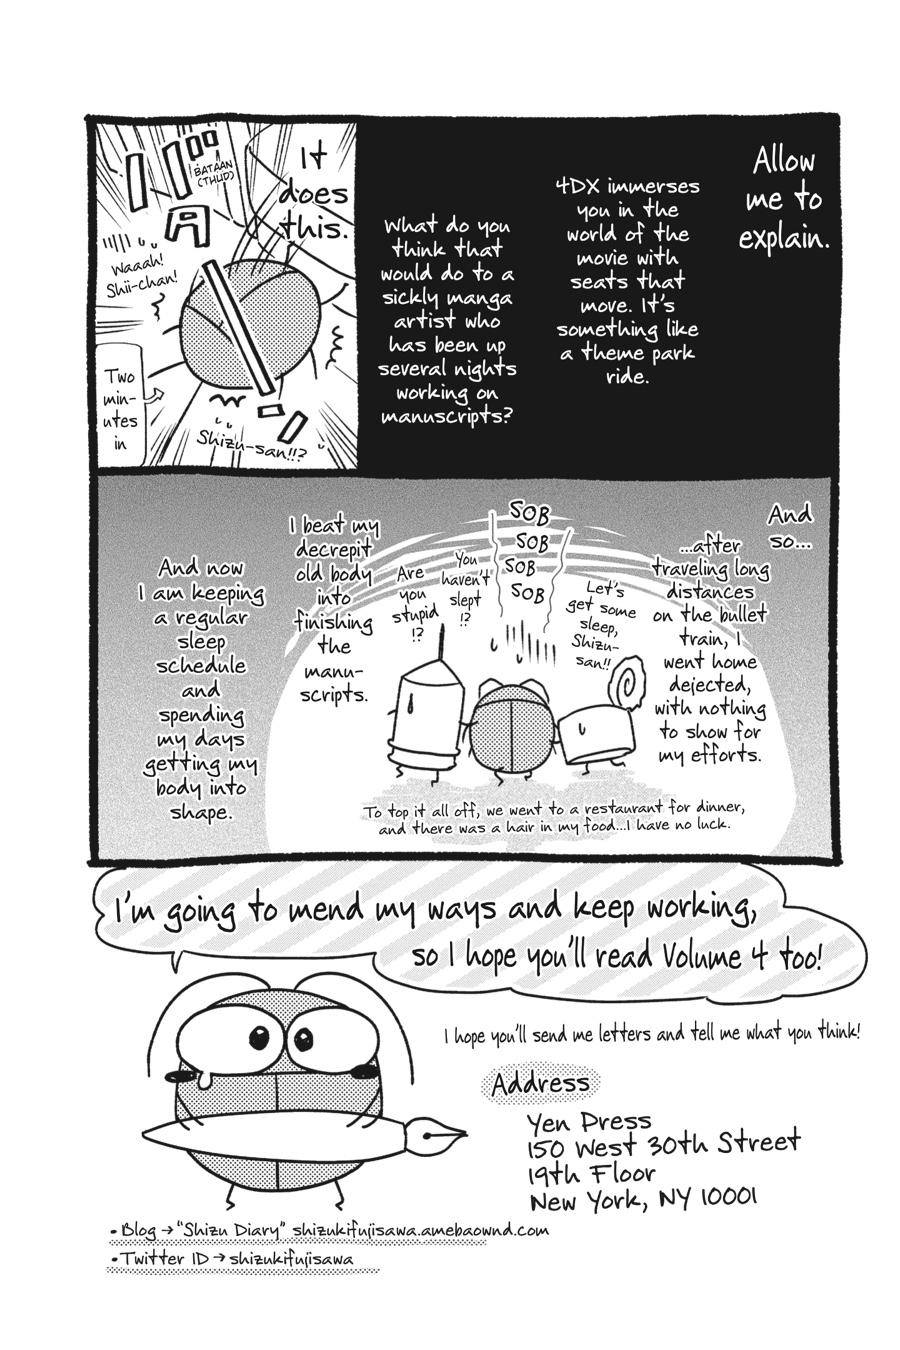 Allow
me to
explain.
4DX immerses
you in the
world of the
movie with
seats that
move. It's
something like
a theme park
ride.
What do you
think that
would do to a
sickly manga
artist who
has been up
several nights
working on
manuscripts?
It
does
this.
BATAAN
(THUD)
Waaah!
Shii-chan!
Two
min-
utes
in
Shizu-san!!?
And
so...
...after
traveling long
distances
on the bullet
train, I
went home
dejected,
with nothing
to show for
my efforts.
Let's
get some
sleep,
Shizu-
san!!
SOB
SOB
SOB
SOB
You
haven't
slept
!?
Are
you
stupid
!?
I beat my
decrepit
old body
into
finishing
the
manu-
scripts.
To top it all off, we went to a restaurant for dinner,
and there was a hair in my food...I have no luck.
And now
I am keeping
a regular
sleep
schedule
and
spending
my days
getting my
body into
shape.
I'm going to mend my ways and keep working,
so I hope you'll read Volume 4 too!
I hope you'll send me letters and tell me what you think!
Address
Yen Press
150 West 30th Street
19th Floor
New York, NY 10001
• Blog → "Shizu Diary" shizukifujisawa.amebaownd.com
• Twitter ID → shizukifujisawa